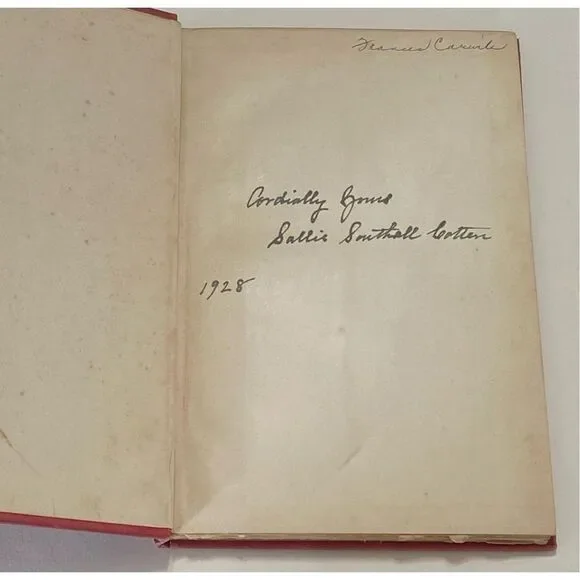 Frances Caruile
Cordially Yours
Sallie Southall Cotten
1928